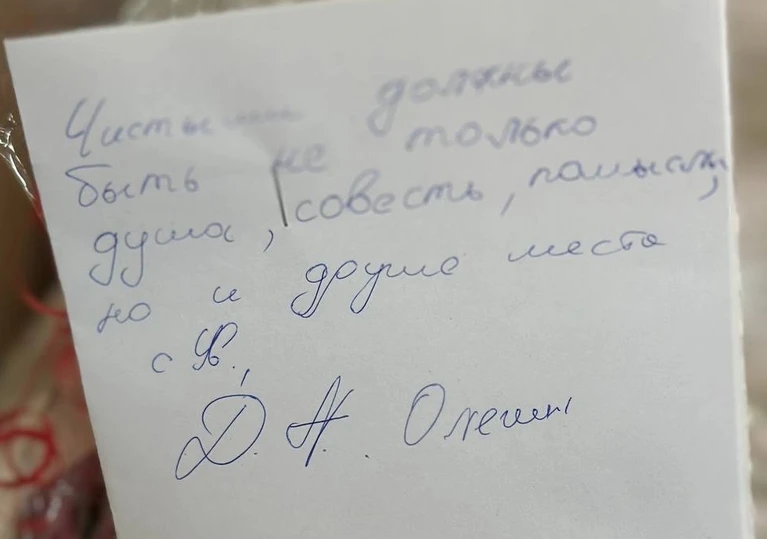 Чистыми должны
быть не только
душа, совесть, помыслы,
но и другие места
с Ув.,
Д. Н.